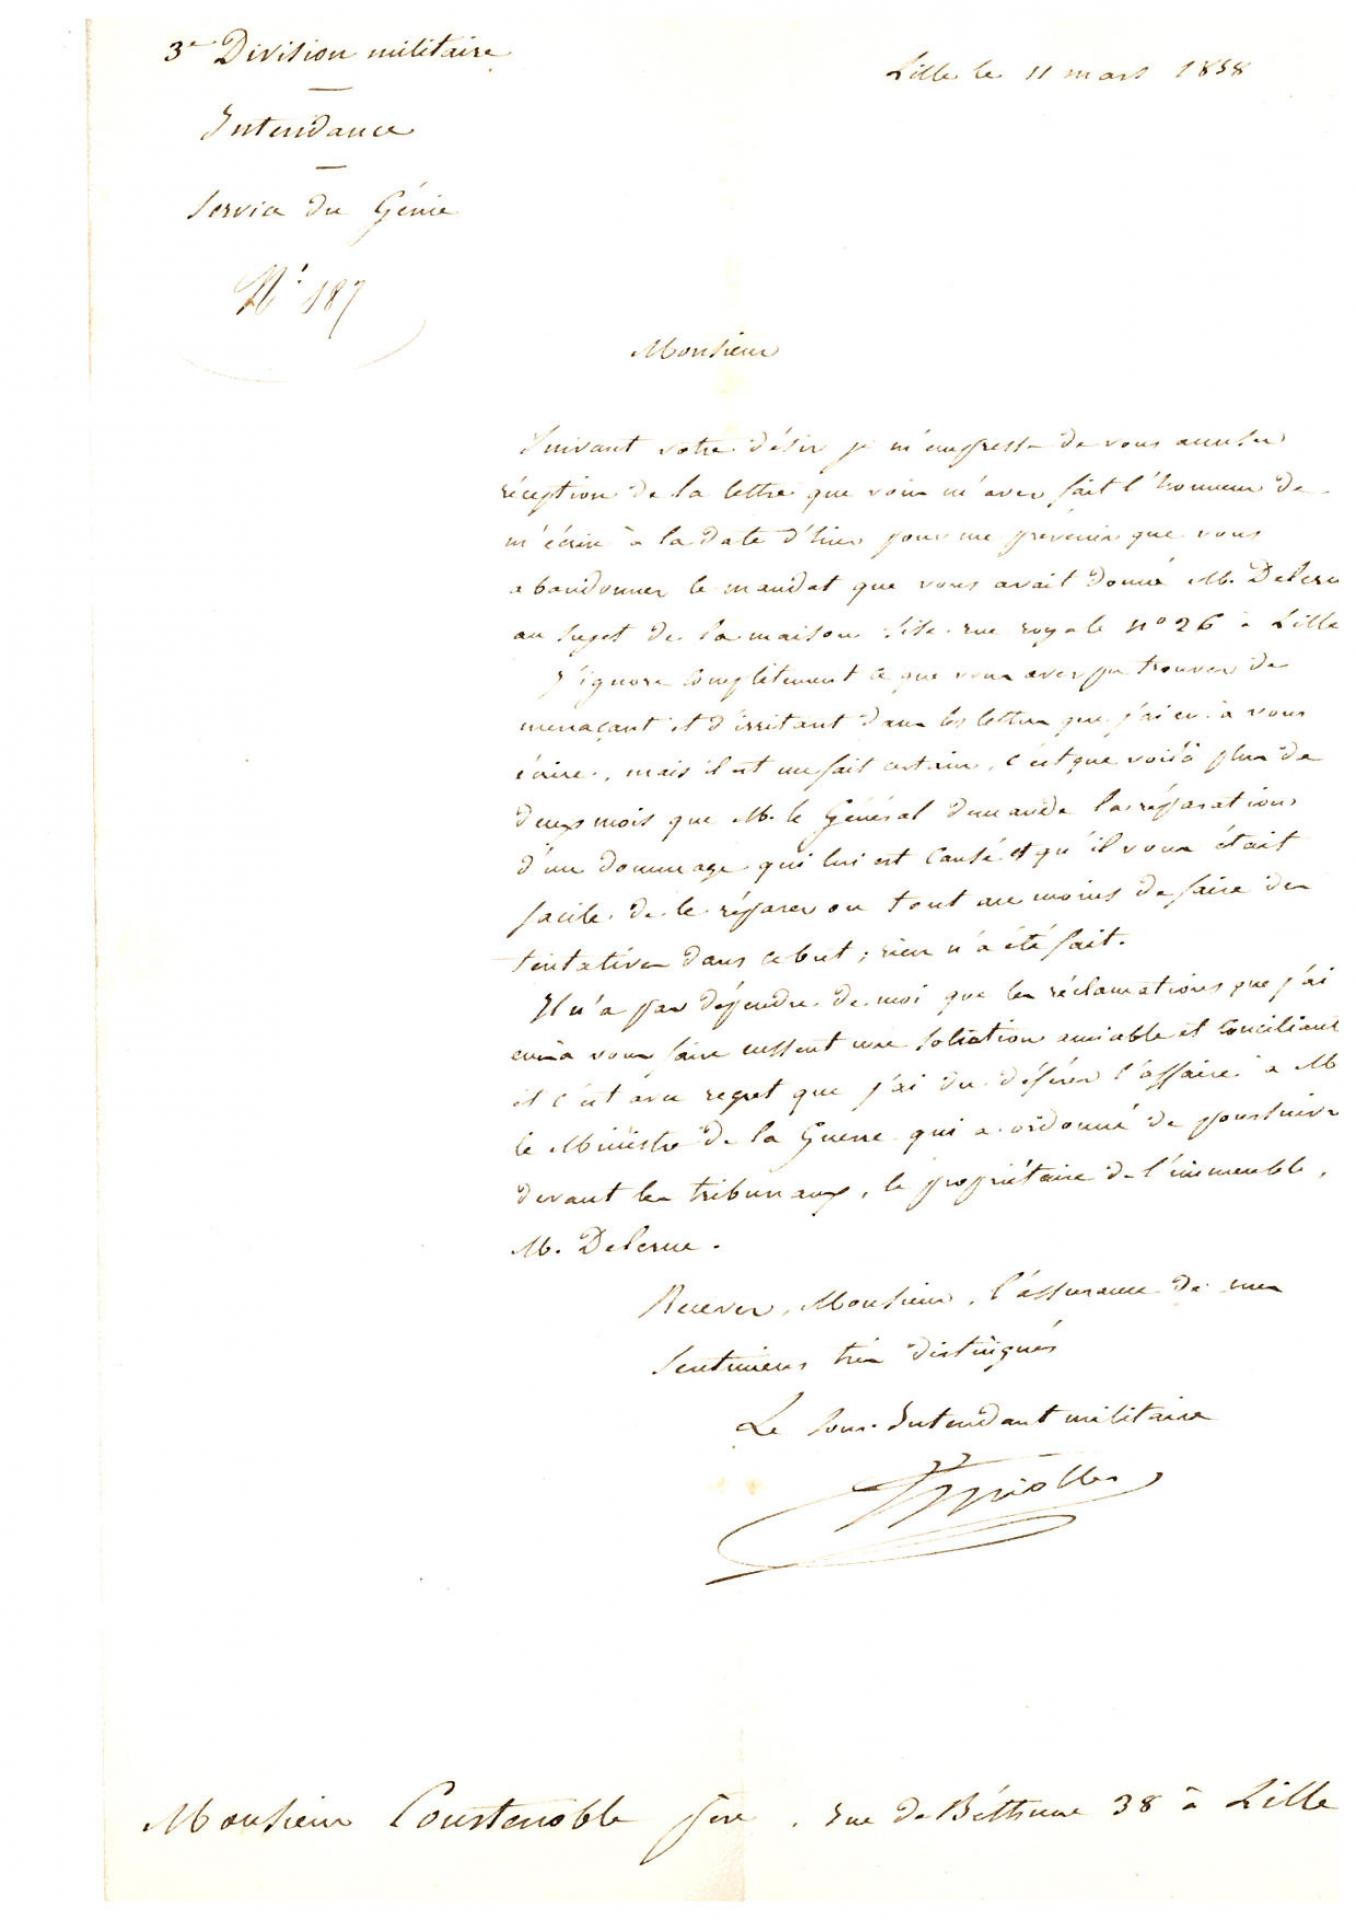 3e Division militaire
Lille le 11 mars 1858
Intendance
Service du Génie
N° 187
Monsieur
Suivant votre désir je m'empresse de vous accuser
réception de la lettre que vous m'avez fait l'honneur de
m'écrire à la date d'hier pour me prévenir que vous
abandonner le mandat que vous avait donné M. Delcru
au sujet de la maison sise rue royale n° 26 à Lille
J'ignore complètement ce que vous avez pu trouver de
menaçant et d'irritant dans les lettres que j'ai eu à vous
écrire, mais il est un fait certain, c'est que voilà plus de
deux mois que M. le Général demande la réparation
d'un dommage qui lui est causé et qu'il vous était
facile de le réparer ou tout au moins de faire des
tentatives dans ce but ; rien n'a été fait.
Il n'a pas dépendre de moi que les réclamations que j'ai
eu à vous faire eussent une solution amiable et conciliant
et c'est avec regret que j'ai du déférer l'affaire à M
le Ministre de la Guerre qui a ordonné de poursuivre
devant les tribunaux, le propriétaire de l'immeuble,
M. Delcrue.
Recevez, Monsieur, l'assurance de mes
sentimens très distingués
Le Sous-Intendant militaire
Monsieur Coustenoble père, rue de Béthune 38 à Lille